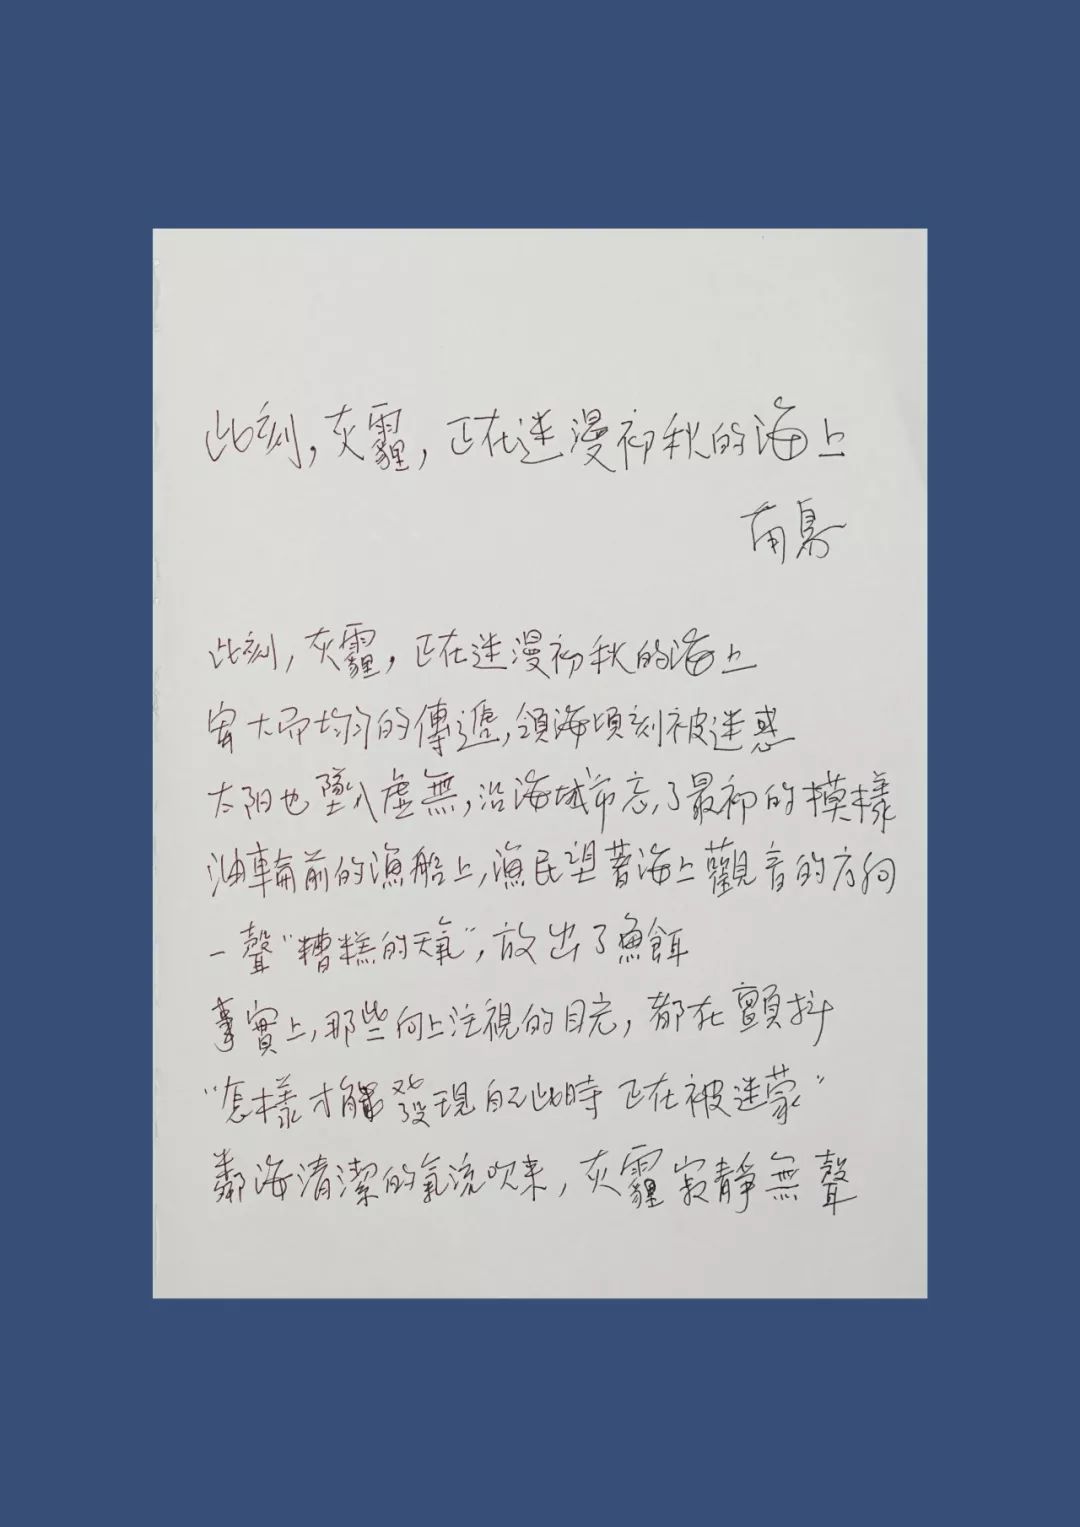 此刻，灰霾，正在迷漫初秋的海上
南鳥
此刻，灰霾，正在迷漫初秋的海上
大而均匀的傳遞，領海頃刻被迷惑
太阳也墜入虚無，沿海城市忘了最初的模樣
油輪前的漁船上，漁民望著海上觀音的方向
一聲“糟糕的天氣”，放出了魚餌
事實上，那些向上注視的目光，都在顫抖
“怎樣才能發現自己此時正在被迷蒙”
鄰海清潔的氣流吹来，灰霾寂靜無聲